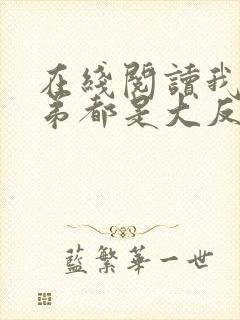 在綫閱讀我
弟都是大反
藍繁華一世